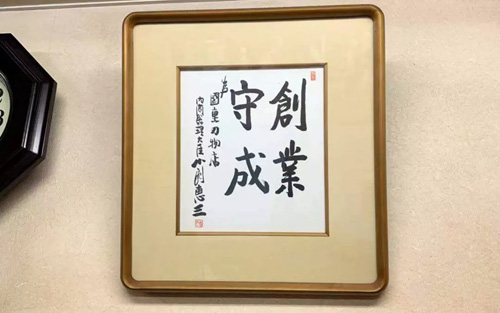 創業
守成
為
國重刃物店
内閣総理大臣小渕恵三